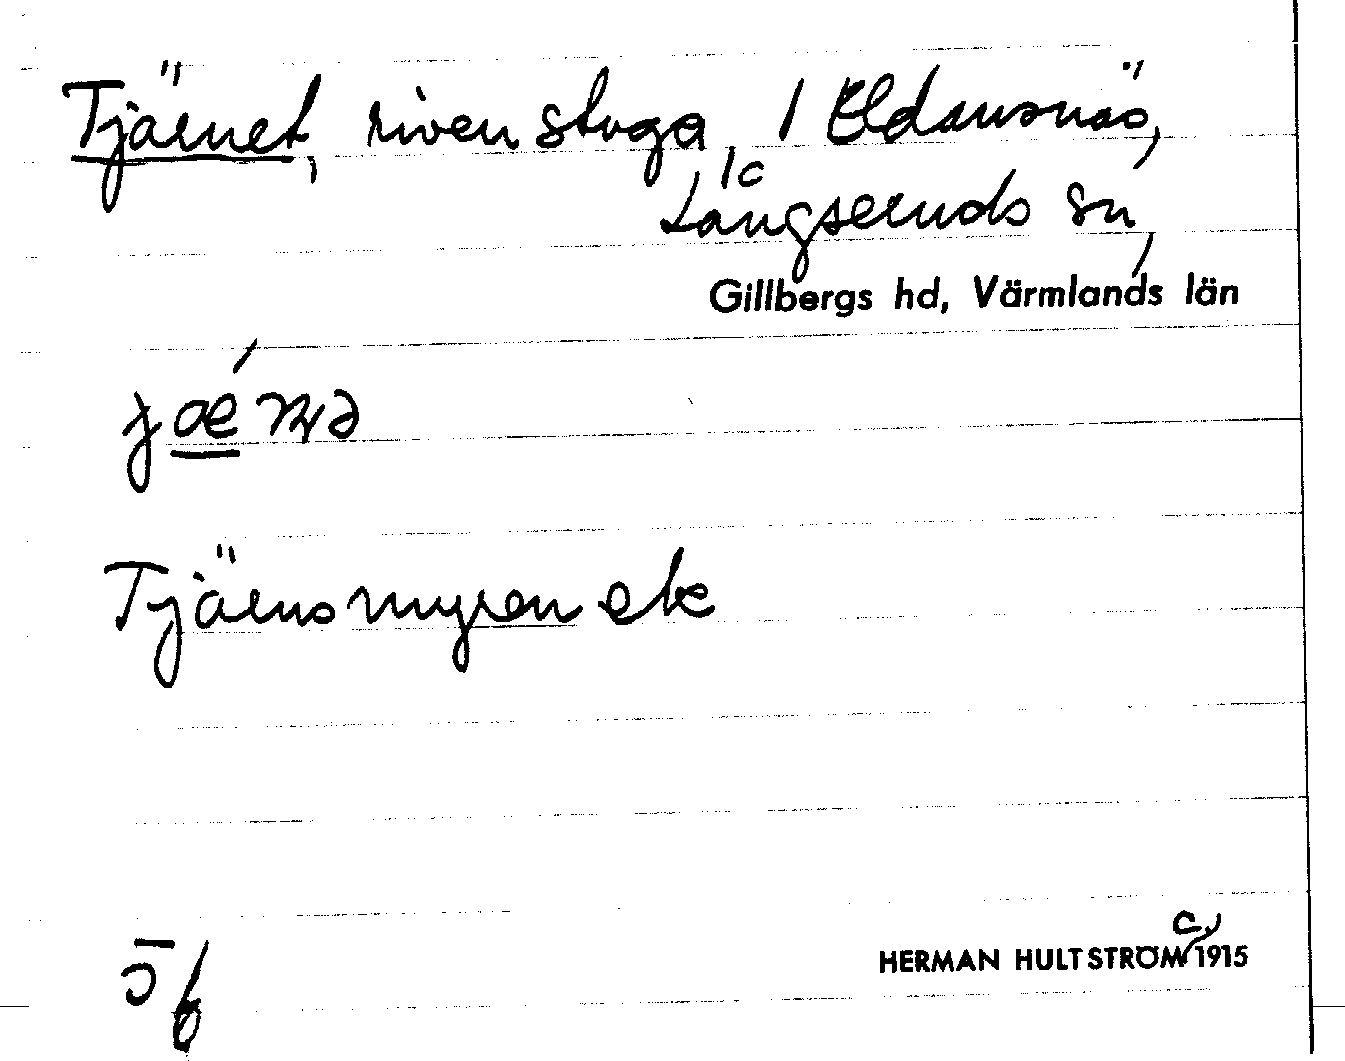 Tjärnet, riven stuga, / Eldansnäs,
1c
Långseruds sn,
Gillbergs hd, Värmlands län
Tjärnsmyren etc
c.
HERMAN HULTSTRÖM 1915